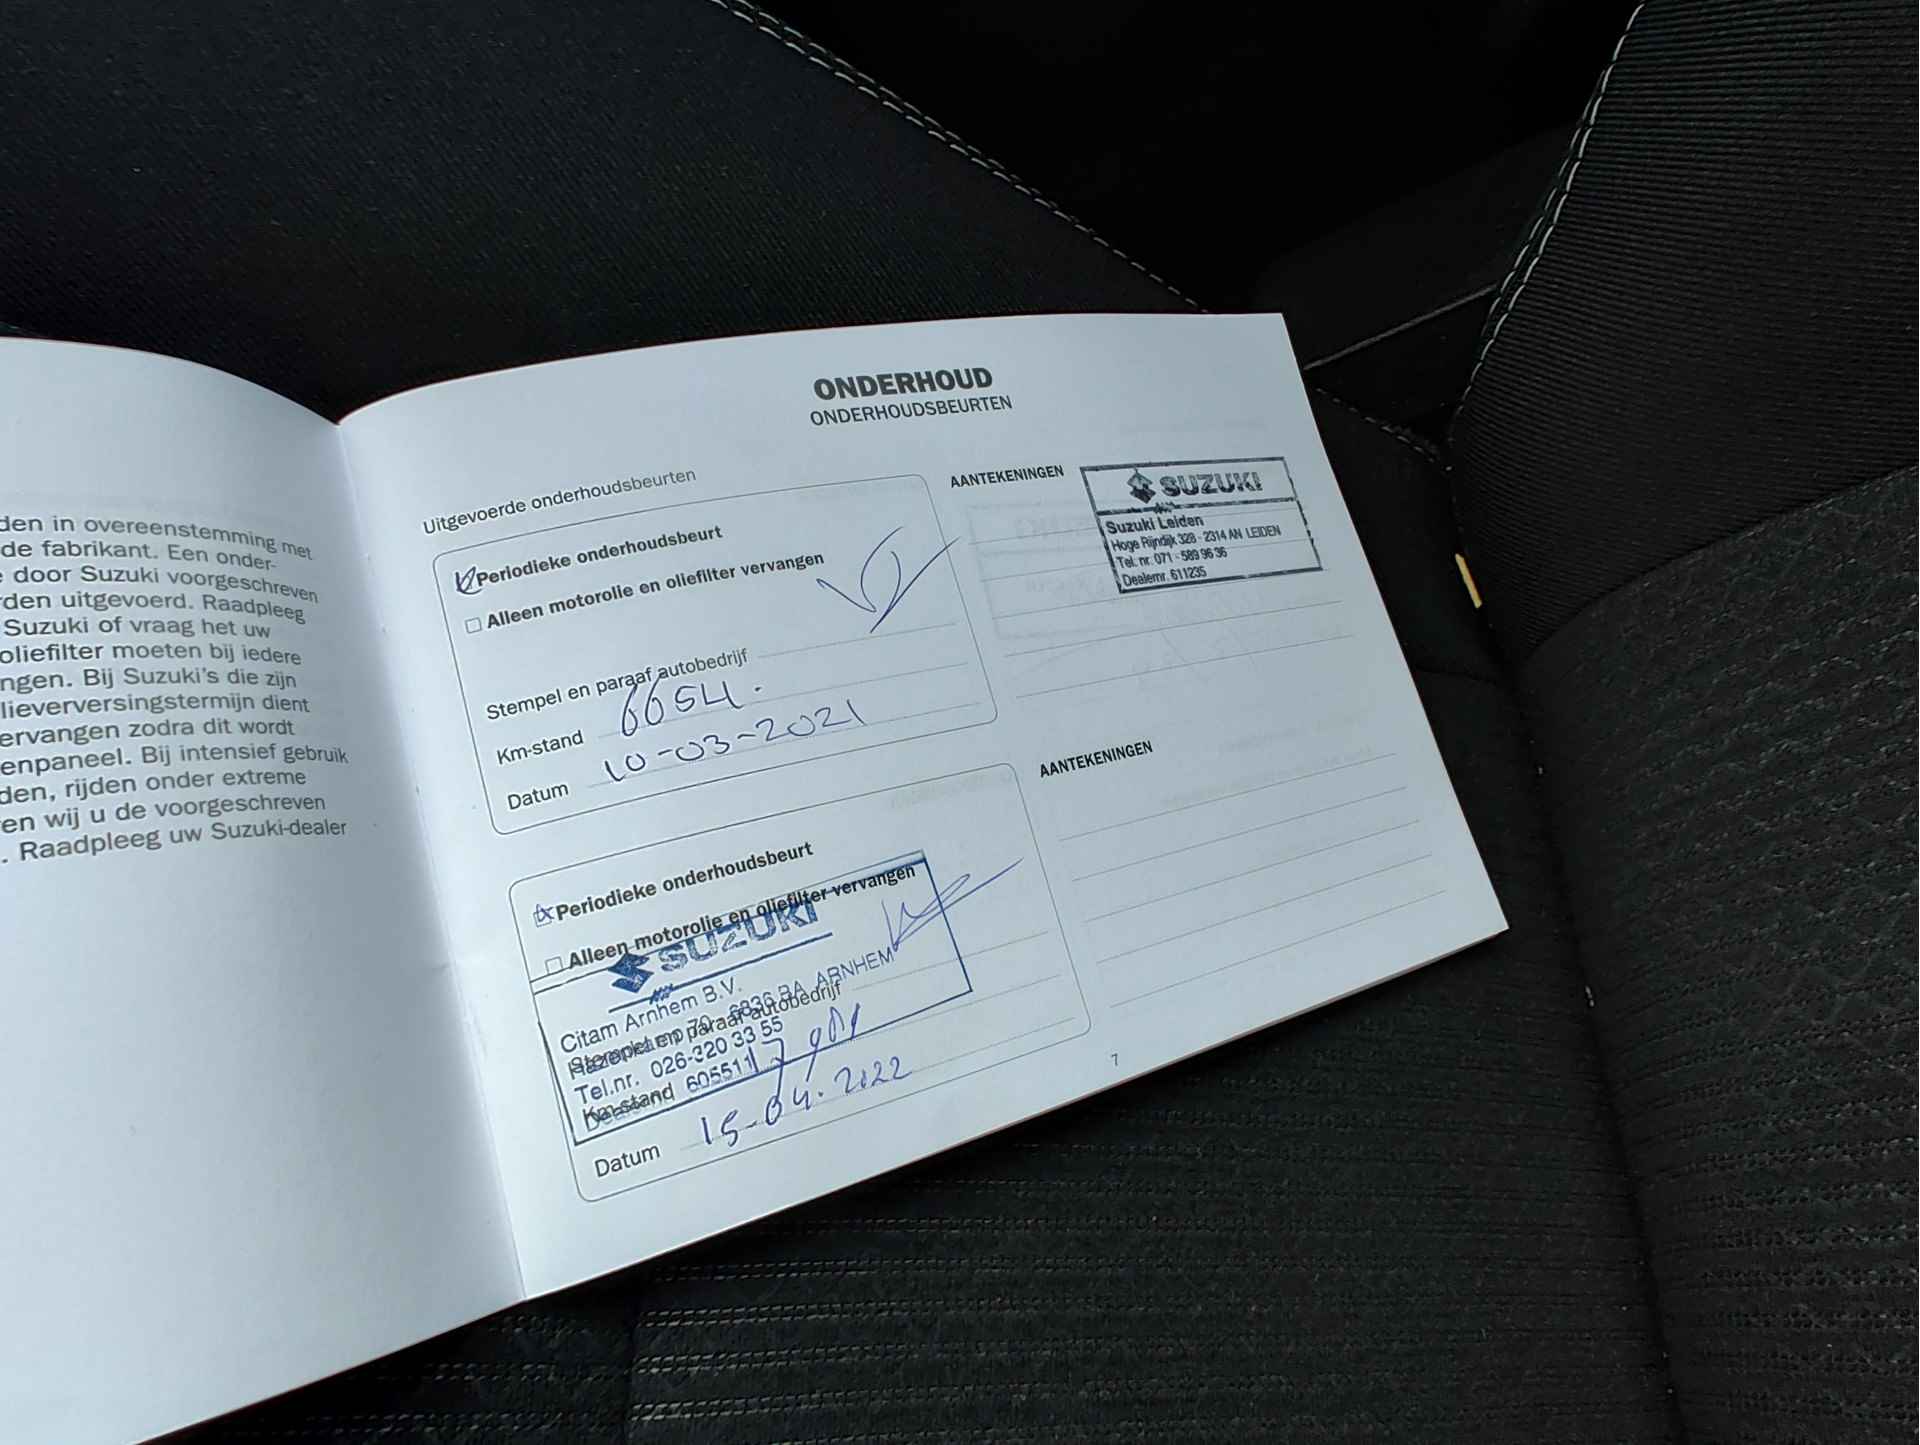 den in overeenstemming met
de fabrikant. Een onder-
door Suzuki voorgeschreven
rden uitgevoerd. Raadpleeg
Suzuki of vraag het uw
oliefilter moeten bij iedere
ngen. Bij Suzuki's die zijn
lieverversingstermijn dient
ervangen zodra dit wordt
enpaneel. Bij intensief gebruik
den, rijden onder extreme
en wij u de voorgeschreven
. Raadpleeg uw Suzuki-dealer
ONDERHOUD
ONDERHOUDSBEURTEN
Uitgevoerde onderhoudsbeurten
Periodieke onderhoudsbeurt
Alleen motorolie en oliefilter vervangen
Stempel en paraaf autobedrijf
Km-stand 6654.
Datum 10-03-2021
AANTEKENINGEN
SUZUKI
Suzuki Leiden
Hoge Rijndijk 328 - 2314 AN LEIDEN
Tel. nr. 071 - 589 96 36
Dealernr. 611235
Periodieke onderhoudsbeurt
Alleen motorolie en oliefilter vervangen
SUZUKI
Citam Arnhem B.V.
70 - 6836 BA ARNHEM
Stempel en paraaf autobedrijf
Tel.nr. 026-320 33 55
Km-stand
605511
Datum 15-04.2022
AANTEKENINGEN
7